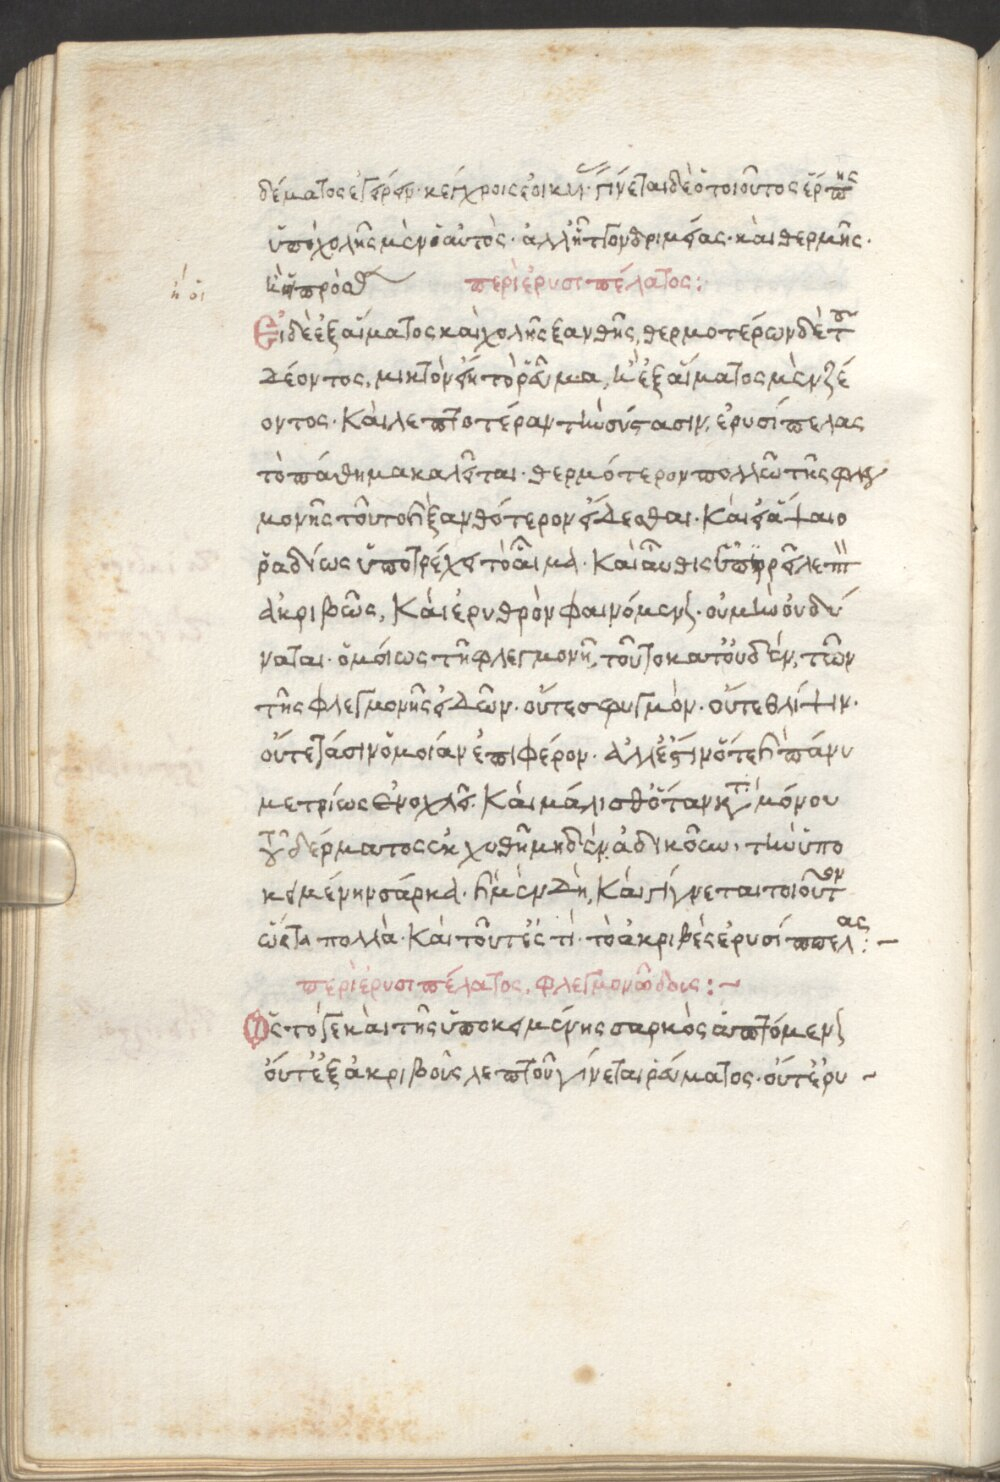 δέματος ἐγείρει· κέγχροις ἐοικυίας· γίνεται δὲ ὁ τοιοῦτος ἕρπης
ὑπὸ χολῆς μὲν ὁ αὐτὸς· ἀλλ' ἧττον δριμείας· καὶ θερμῆς·
ἢ οἱ
ἢ πρόσθ περὶ ἐρυσιπέλατος:
Εἰ δὲ ἐξ αἵματος καὶ χολῆς ξανθῆς, θερμοτέρων δὲ τοῦ
δέοντος, μικτὸν εἴη τὸ ῥεῦμα, ἢ ἐξ αἵματος μὲν ζέ
οντος· καὶ λεπτοτέραν τὴν σύστασιν, ἐρυσίπελας
τὸ πάθημα καλεῖται· θερμότερον πολλῷ τῆς φλεγ
μονῆς τοῦτο ἢ ξανθότερον εἰδέσθαι· καὶ εἰ ἅψαιο
ῥαδίως ὑποτρέχει τὸ αἷμα· καὶ αὖθις ἐπιρρεῖ λεπτὸν
ἀκριβῶς, καὶ ἐρυθρὸν φαινόμενον· οὐ μὴν ὀδυ
νᾶται· ὁμοίως τῇ φλεγμονῇ, τοῦτο κατ' οὐδὲν, τῶν
τῆς φλεγμονῆς εἰδῶν· οὔτε σφυγμὸν· οὔτε θλίψιν·
οὔτε τάσιν ὁμοίαν ἐπιφέρον· ἀλλ' ἔστιν ὅτε ἢ πάνυ
μετρίως ἐνοχλεῖ· καὶ μάλισθ' ὅταν κατὰ μόνου
τοῦ δέρματος ἐκχυθῇ μηδὲν ἀδικῆσαν, τὴν ὑπο
κειμένην σάρκα· ἢ μὲν δὴ, καὶ γίγνεται τοιοῦτον
ὡς τὰ πολλὰ· καὶ τοῦτ' ἔστι· τὸ ἀκριβὲς ἐρυσίππελας:~
περὶ ἐρυσιπέλατος, φλεγμονώδους:~
Ὡς τό γε καὶ τῆς ὑποκειμένης σαρκὸς ἁπτόμενον
οὔτ' ἐξ ἀκριβοῦς λεπτοῦ γίνεται ῥεύματος· οὔτ' ἐρυ~